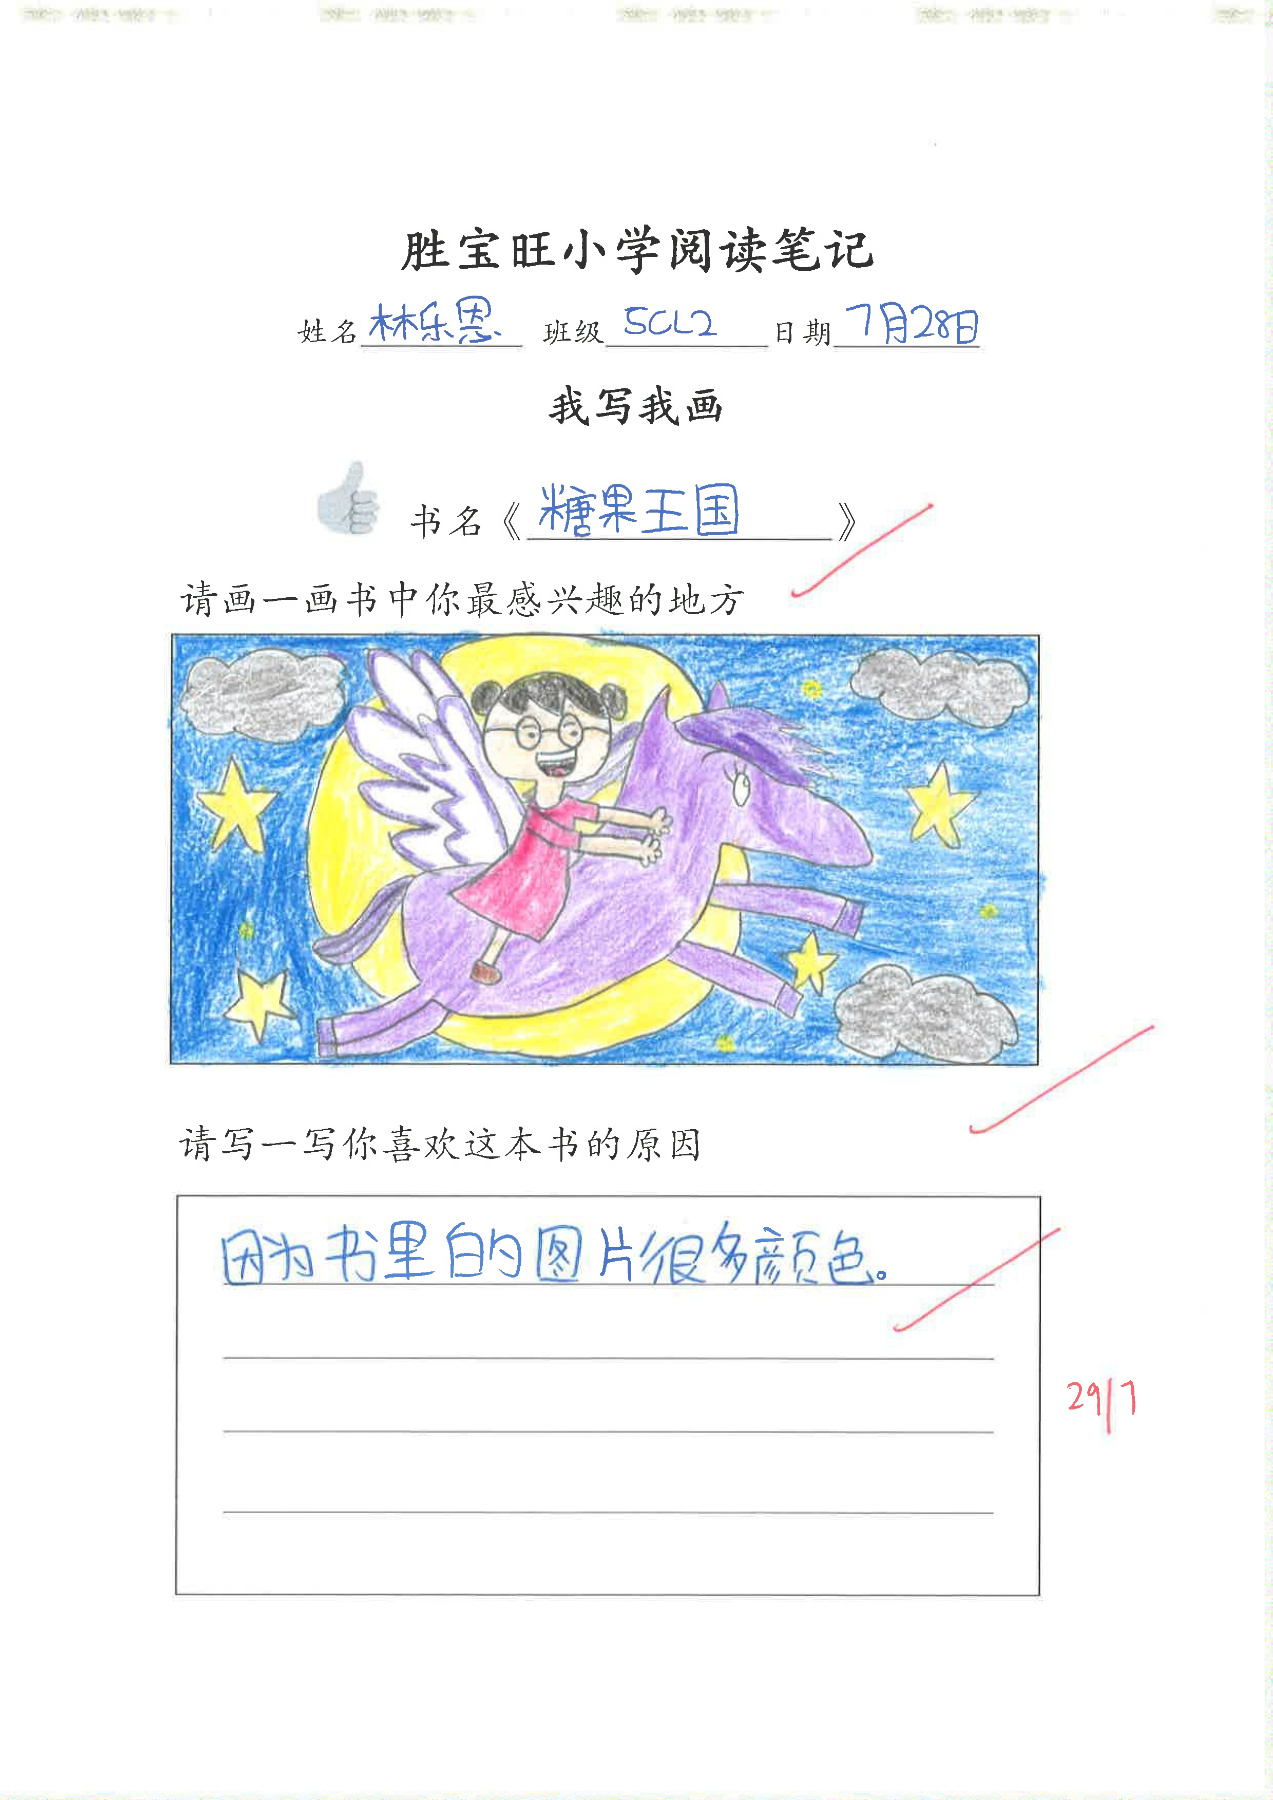 胜宝旺小学阅读笔记
姓名 林乐恩 班级 5CL2 日期 7月28日
我写我画
书名《糖果王国》
请画一画书中你最感兴趣的地方
请写一写你喜欢这本书的原因
因为书里的图片很多颜色。
29/7